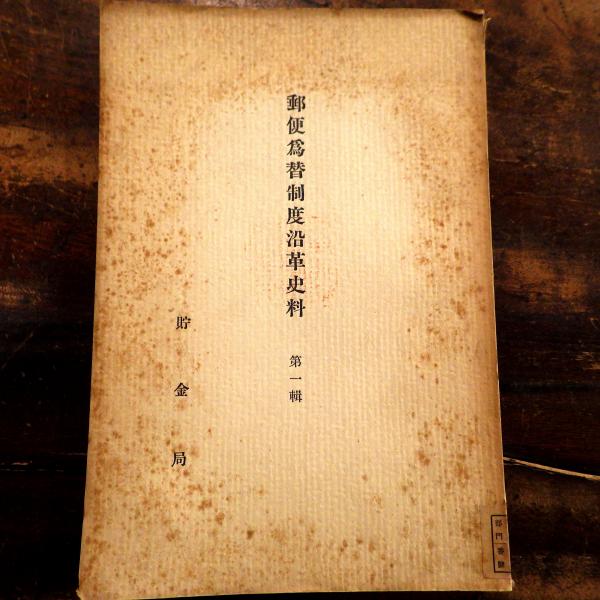 郵便爲替制度沿革史料
第一輯
貯金局
部門
番號